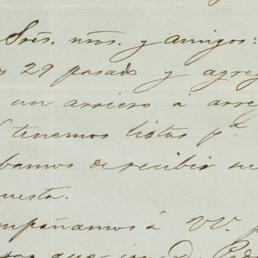 Srés. nros. y amigos:
29 pasado y agreg
un arriero á arreg
tenemos listas pª
bamos de recibir su
uesta.
ompañamos á VV. p